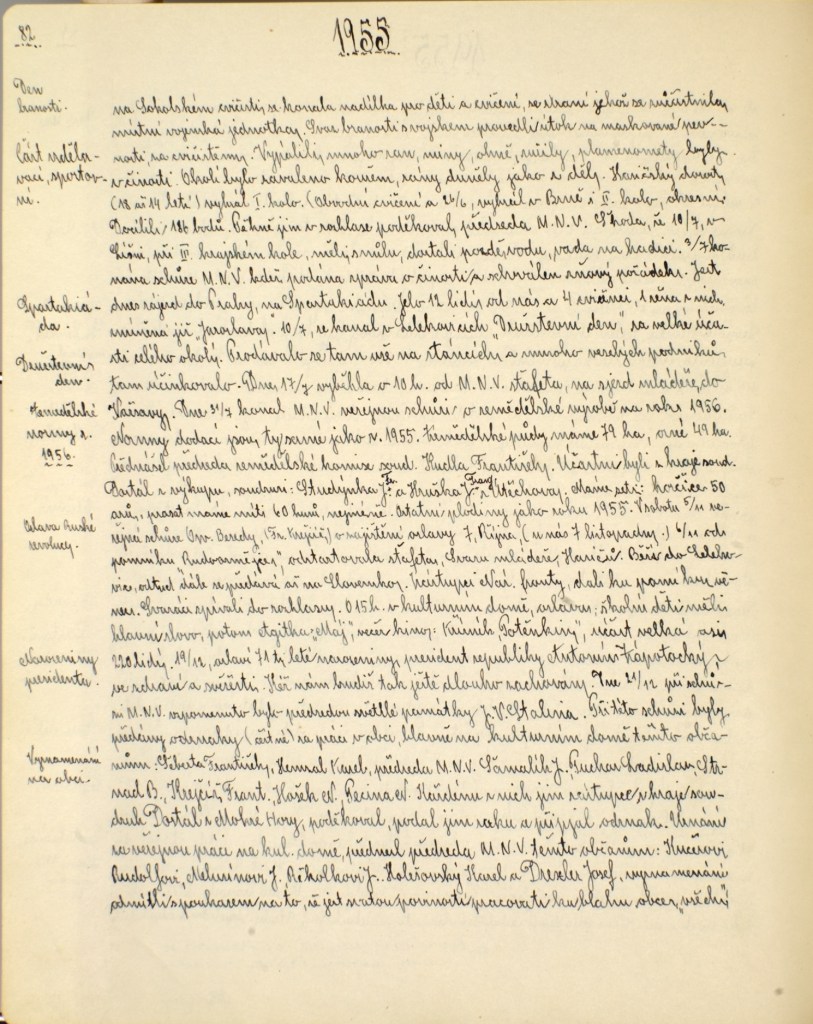 82
1955
Den
branosti.
Část vzdělá-
vací, sportov-
ní.
Spartakiá-
da.
Družstevní
den.
Zemědělské
normy r.
1956.
Oslava Ruské
revoluce.
Narozeniny
presidenta.
Vyznamenání
na obci.
na Sokolském cvičišti, se konala nadílka pro děti a cvičení, se zbraní jehož se zúčastnila,
místní vojenská jednotka. Svaz branosti s vojskem provedli útok na maskované pev-
nosti na cvičištěmi. Vypálili, mnoho ran, miny, ohně, světlice, plamenomety byly
v činosti. Okolí bylo zavaleno kouřem, rány duněly jako z děl. Hasičský dorost,
(12 až 14 letí) vyhrál I. kolo. (Obvodní cvičení a 26/6, vyhrál v Brně i II. kolo, okresní.
Docílili 186 bodů. Pěkně jim v rozhlase poděkoval, předseda M.N.V. Škoda, že 10/7, v
Líšni, při III. krajském kole, měli, smůlu, dostali pozdě, vodu, vada na hadici. 3/7 ko-
nána schůze M.N.V. kde podána zpráva o činosti, a schválen nový pořádek. Jest
dnes zájezd do Prahy, na Spartakiádu. Jelo 12 lidí, od nás a 4 cvičenci, 1 žena z nich,
zmíněná již "Jaroslavy". 10/7, se konal v Lelekovicích "Družstevní den", za velké úča-
sti celého okolí. Prodávalo se tam vše na stáncích, a mnoho veselých podniků,
tam účinkovalo. Dne, 17/7 vyběhla v 10 h. od M.N.V. štafeta, na sjezd mládeže, do
Varšavy. Dne 31/7 konal M.N.V. veřejnou schůzi, o zemědělské výrobě na rok 1956.
Normy dodací jsou, ty samé jako r. 1955. Zemědělské půdy máme 79 ha, orné 49 ha.
Přednášel předseda zemědělské komise soud. Kudla František. Účastni byli, z kraje soud.
Dostál z výkupu, soudruzi: Studýnka J. Fr. a Hruška J. Frant. z Ořechova. Máme seti: hořčice 50
arů, prasat máme míti 60 kusů, nejméně. Ostatní plodiny jako roku 1955. V sobotu 5/11 ve-
řejná schůze Osv. Besedy, (Fr. Krejčíř) o zajištění oslavy 7, Října, (u nás 7 listopadu.) 6/11 od
pomníku "Rudoarmějců" odstartovala štafeta, Svazu mládeže, Hasičů. Běží do Leleko-
vic, odtud "dále se předává až na Slovensko. Zástupci Nar. fronty, dali ku pomníku vě-
nec. Svazáci zpívali do rozhlasu. O 15 h. v kulturním domě, oslava; školní děti měli
hlavní slovo, potom agitka "Máj", večer kino: Křižník "Potěmkin", účast velká asi
220 lidí. 19/12, oslaví 71 ti leté narozeniny, president republiky Antonín Zápotocký,
ve zdraví a svěžesti. Kéž nám budiž tak ještě dlouho zachovány. Dne 21/12 při schů-
zi M.N.V. vzpomenuto bylo předsedou světlé památky J. V. Stalina. Při této schůzi byly
předány odznaky (čestné) za práci v obci, hlavně na kulturním domě těmto obča-
nům: Sebesta František, Nesnal Karel, předseda M.N.V. Šamalík J. Puchar Ladislav, Str-
nad B., Krejčíř, Frant., Hošek A. Pecina A. Každému z nich jim zástupce z kraje sou-
druh Dostál z Mokré Hory, poděkoval, podal jim ruku a připjal odznak. Uznání
za veřejnou práci na kul. domě, přednesl předseda M.N.V. těmto občanům: Kučerovi
Rudolfovi, Neřurínovi J. Řeholkovi J. Holešovský Karel a Drexler Josef, vyznamenání
odmítli s poukazem na to, že jest svatou povinností pracovati ku blahu obce, "všech"